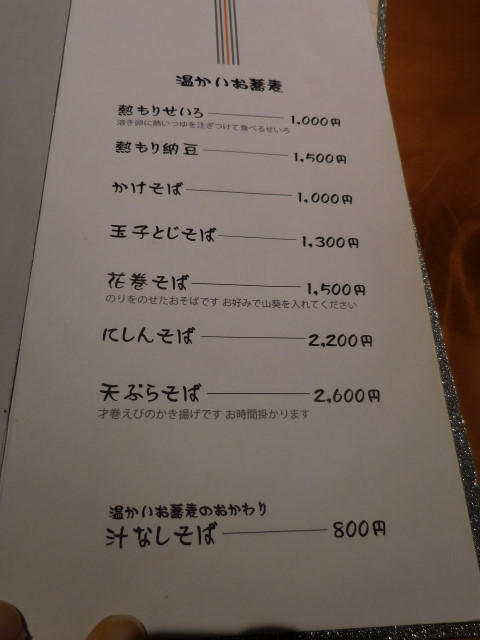 温かいお蕎麦
熱もりせいろ 1,000円
溶き卵に熱いつゆを注ぎつけて食べるせいろ
熱もり納豆 1,500円
かけそば 1,000円
玉子とじそば 1,300円
花巻そば 1,500円
のりをのせたおそばです お好みで山葵を入れてください
にしんそば 2,200円
天ぷらそば 2,600円
才巻えびのかき揚げです お時間掛かります
温かいお蕎麦のおかわり
汁なしそば 800円